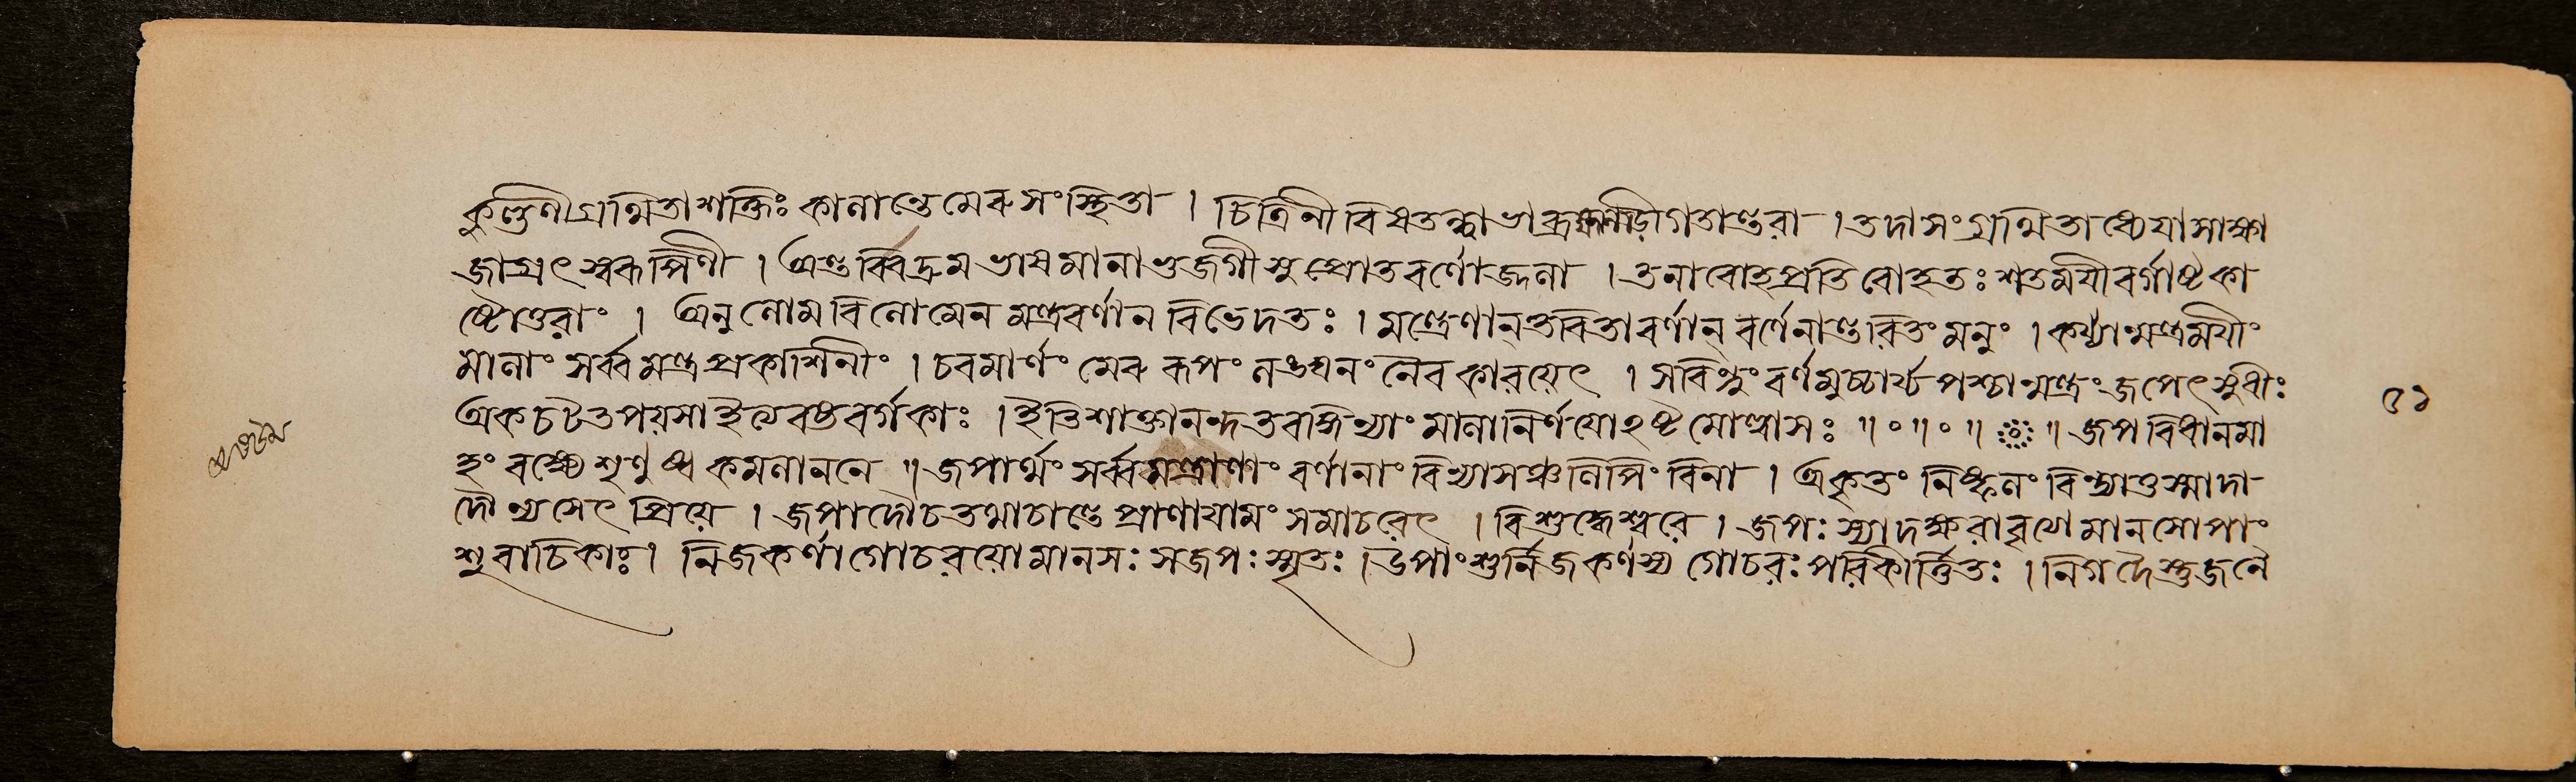 কুণ্ডলীগ্রন্থিতাশক্তিঃ কালান্তেমেরুসংস্থিতা । চিত্রিনী বিসতন্ত্বাভাব্রহ্মনাড়ীগতান্তরা । তদাসংগ্রন্থিতাধ্যেয়াসাক্ষা
জাগ্রৎস্বরূপিণী । অন্তর্বিদ্রুমভাসমানাভুজগীসুপ্রোতবর্ণোজ্জ্বলা । তলাবোহপ্রতিবোহতঃ শতময়ীবর্গাষ্টকা
ষ্টোত্তরাং । অনুলোমবিলোমেন মন্ত্রবর্ণান বিভেদতঃ । মন্ত্রেণান্তরিতাবর্ণান্ বর্ণেনান্তরিতংমনুং । কুর্য্যান্মন্ত্রময়ীং
মালাং সর্ব্বমন্ত্রপ্রকাশিনীং । চরমার্ণং মেরুরূপং লঙ্ঘনং নৈব কারয়েৎ । সবিন্দুং বর্ণমুচ্চার্য্য পশ্চান্মন্ত্রং জপেৎ সুধীঃ
অকচটতপয়সাইত্যেবষ্টবর্গকাঃ । ইতিশাক্তানন্দতরঙ্গিণ্যাং মালানির্ণয়োঽষ্টমোল্লাসঃ ॥ ॰ ॥ ॰ ॥ ॥ জপবিধানমা
হং বক্ষ্যে শৃণুষ্ব কমলাননে ॥ জপার্থং সর্ব্বমন্ত্রাণাং বর্ণানাং বিন্যাসঞ্চলিপিং বিনা । অকৃতং নিষ্ফলং বিন্দ্যাত্তস্মাদা
দৌ ন্যসেৎ প্রিয়ে । জপাদৌচতথাচান্তে প্রাণায়ামং সমাচরেৎ । বিশুদ্ধেশ্বরে । জপঃ স্যাদক্ষরাবৃত্তে মানসোপাং
শুবাচিকাঃ । নিজকর্ণাগোচরয়োমানসঃ সজপঃ স্মৃতঃ । উপাংশুর্নিজকর্ণস্য গোচরঃ পরিকীর্ত্তিতঃ । নিগদৈস্তুজনৈ
৫১